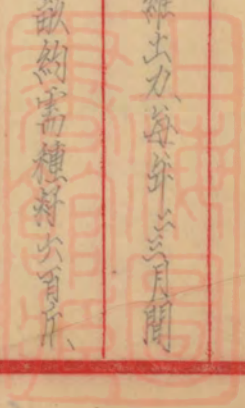 雖出力、每年二三月間
畝約需種籽六百斤、